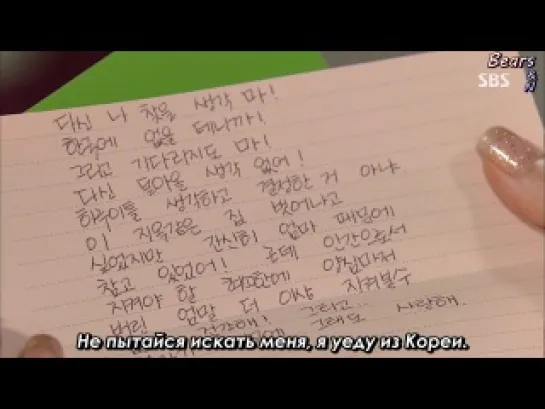 Bears
SBS
다신 나 찾을 생각 마!
한국에 없을 테니까!
그리고 기다리지도 마!
다신 돌아올 생각 없어!
하루이틀 생각하고 결정한 거 아냐
이 지옥같은 집 벗어나고
싶었지만 간신히 엄마 때문에
참고 있었어! 근데 인간으로서
지켜야 할 최소한에 양심마저
버린 엄말 더 이상 지켜볼수
건강해! 그리고... 그래도 사랑해.
Не пытайся искать меня, я уеду из Кореи.